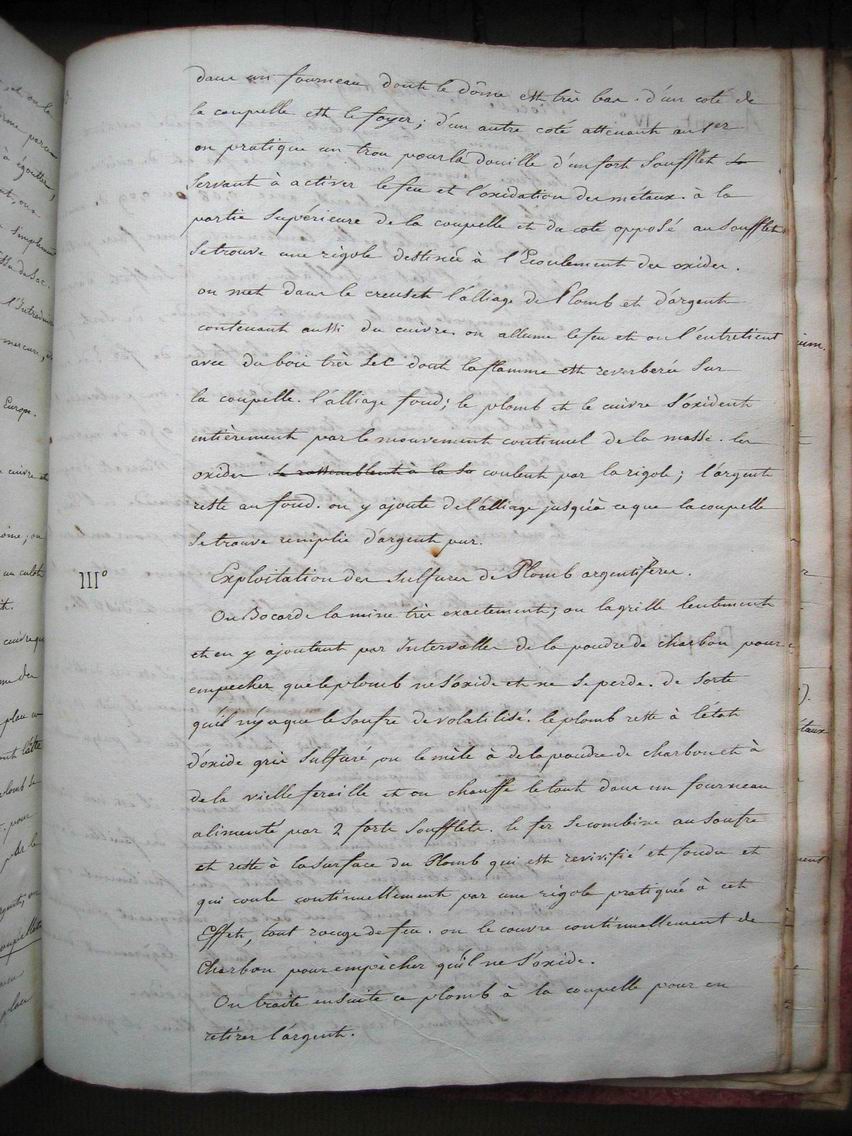 dans un fourneau dont le dôme est très bas. d'un coté de
la coupelle est le foyer; d'un autre coté attenant au
on pratique un trou pour la douille d'un fort Soufflet
Servant à activer le feu et l'oxidation des métaux. à la
partie Supérieure de la coupelle et du coté opposé au Soufflet
Se trouve une rigole destinée à l'Ecoulement des oxides.
on met dans le creuset l'alliage de Plomb et d'argent
contenant aussi du cuivre. on allume le feu et on l'entretient
avec du bois très Sec dont la flamme est reverberée Sur
la coupelle. l'alliage fond; le plomb et le cuivre S'oxident
entièrement par le mouvement continuel de la masse. les
oxides se rassemblent à la coulent par la rigole; l'argent
reste au fond. on y ajoute de l'alliage jusqu'à ce que la coupelle
Se trouve remplie d'argent pur.
III° Exploitation des Sulfures de Plomb argentifères.
On Bocarde la mine très exactement; on la grille lentement
et en y ajoutant par Intervalles de la poudre de charbon pour
empecher que le plomb ne S'oxide et ne Se perde. de Sorte
qu'il n'y a que le Soufre de volatilisé. le plomb reste à l'état
d'oxide gris Sulfuré on le mêle à de la poudre de charbon et à
de la vielle feraille et on chauffe le tout dans un fourneau
alimenté par 2 forts Soufflets. le fer Se combine au Soufre
et reste à la Surface du Plomb qui est revivifié et fondu et
qui coule continuellement par une rigole pratiquée à cet
Effet, tout rouge de feu. on le couvre continuellement de
Charbon pour empècher qu'il ne S'oxide.
On traite ensuite ce plomb à la coupelle pour en
retirer l'argent.